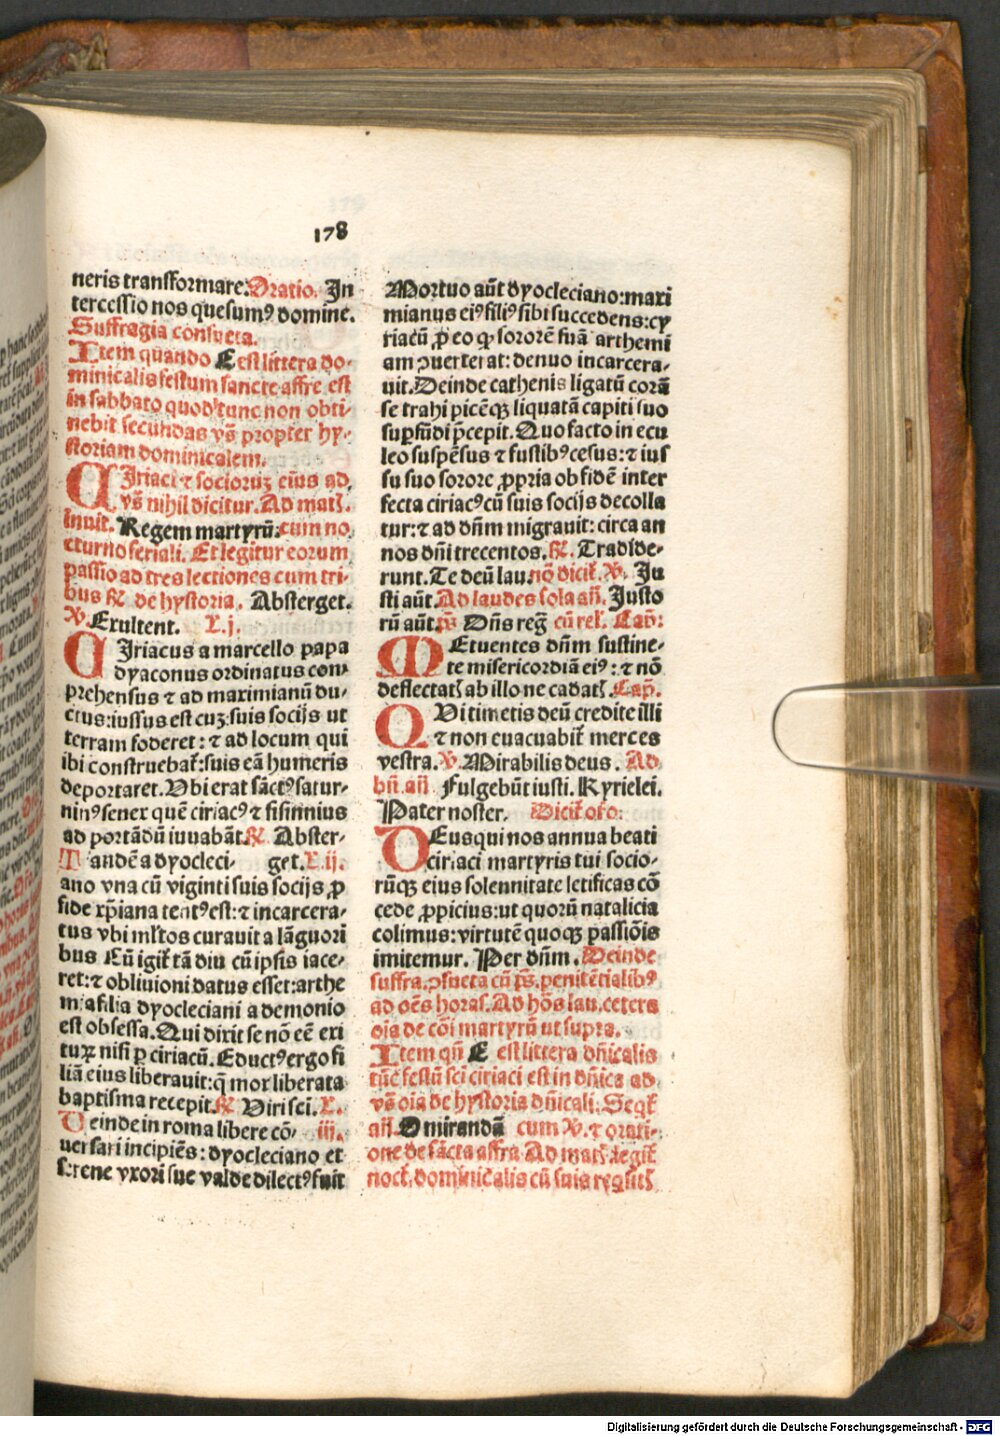 178
neris transformare. Oratio. In
tercessio nos quesumꝰ domine.
Suffragia consueta.
Item quando E est littera do-
minicalis festum sancte affre est
in sabbato quod tunc non obti-
nebit secundas vs̃ propter hy-
storiam dominicalem.
CIriaci ⁊ socioruꝫ eius ad,
vs̃ nihil dicitur. Ad mat̃.
Inuit. Regem martyrũ: cum no,
cturno feriali. Et legitur eorum
passio ad tres lectiones cum tri-
bus ℟ de hystoria. Absterget.
℣ Exultent. L. j.
CIriacus a marcello papa
dyaconus ordinatus com-
prehensus ⁊ ad maximianũ du-
ctus: iussus est cuꝫ suis socijs ut
terram foderet: ⁊ ad locum qui
ibi construebat̃: suis eã humeris
deportaret. Vbi erat sãctꝰ satur-
ninꝰ senex quẽ ciriacꝰ ⁊ sisinnius
ad portãdũ iuuabãt. ℟. Abster-
Tandẽ a dyocleci- get. L. ij.
ano vna cũ viginti suis socijs ꝓ
fide xp̃iana tentꝰ est: ⁊ incarcera-
tus vbi ml̃tos curauit a lãguori
bus Cũ igit̃ tã diu cũ ipsis iace-
ret: ⁊ obliuioni datus esset: arthe
mia filia dyocleciani a demonio
est obsessa. Qui dixit se nõ eẽ exi
tuꝝ nisi ꝑ ciriacũ. Eductꝰ ergo fi
liã eius liberauit: q̃ mox liberata
baptisma recepit. ℟ Viri sci. L.
Deinde in roma libere cõ- iij.
uersari incipiẽs: dyocleciano et
serene vxori sue valde dilectꝰ fuit
Mortuo aũt dyocleciano: maxi
mianus eiꝰ filiꝰ sibi succedens: cy
riacũ ꝓ eo ꝙ sororẽ suã arthemi
am ꝯuerterat: denuo incarcera-
uit. Deinde cathenis ligatũ corã
se trahi picẽꝙ liquatã capiti suo
supfũdi p̃cepit. Quo facto in ecu
leo suspẽsus ⁊ fustibꝰ cesus: ⁊ ius
su suo sorore ꝓpria ob fidẽ inter
fecta ciriacꝰ cũ suis socijs decolla
tur: ⁊ ad dñm migrauit: circa an
nos dñi trecentos. ℟. Tradide-
runt. Te deũ lau. nõ dicit̃. ℣. Ju
sti aũt. Ad laudes sola añ. Justo
rũ aũt. p̃s Dñs reg̃ cũ rel̃. Cap̃:
MEtuentes dñm sustine-
te misericordiã eiꝰ: ⁊ nõ
deflectat̃ ab illo ne cadat̃. Cap̃.
QVi timetis deũ credite illi
⁊ non euacuabit̃ merces
vestra. ℣. Mirabilis deus. Ad
bñ. añ Fulgebũt iusti. Kyrielei.
Pater noster. Dicit̃ oro:
DEus qui nos annua beati
ciriaci martyris tui socio-
rũꝙ eius solennitate letificas cõ
cede ꝓpicius: ut quorũ natalicia
colimus: virtutẽ quoꝙ passiõis
imitemur. Per dñm. Deinde
suffra. ꝯsueta cũ p̃s. penitẽtialibꝰ
ad oẽs horas. Ad hõs lau. cetera
oĩa de cõi martyrũ ut supra.
Item qñ E est littera dñicalis
tũc festũ sci ciriaci est in dñica ad
vs̃ oĩa de hystoria dñicali. Seqt̃
añ. O mirandã cum ℣. ⁊ orati-
one de sãcta affra Ad mat̃ legit̃
noct̃. dominicalis cũ suis rẽglit̃
Digitalisierung gefördert durch die Deutsche Forschungsgemeinschaft - DFG